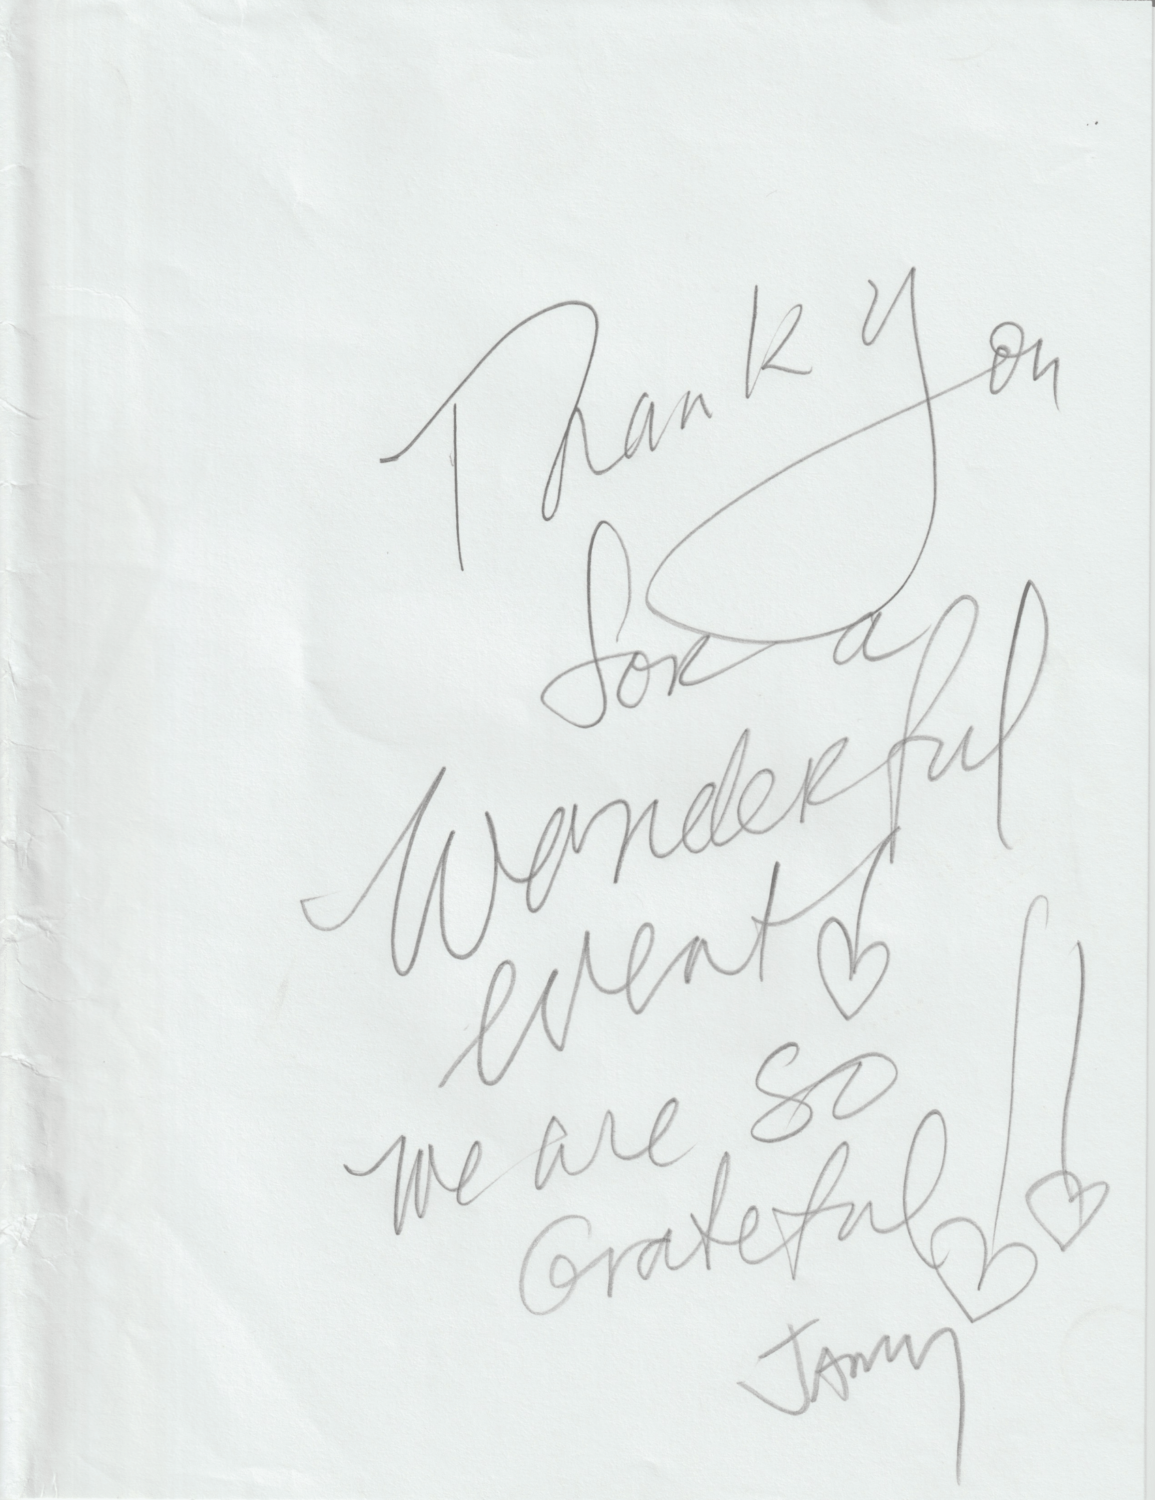 Thank You
for a
Wonderful
event!
We are so
Grateful!!